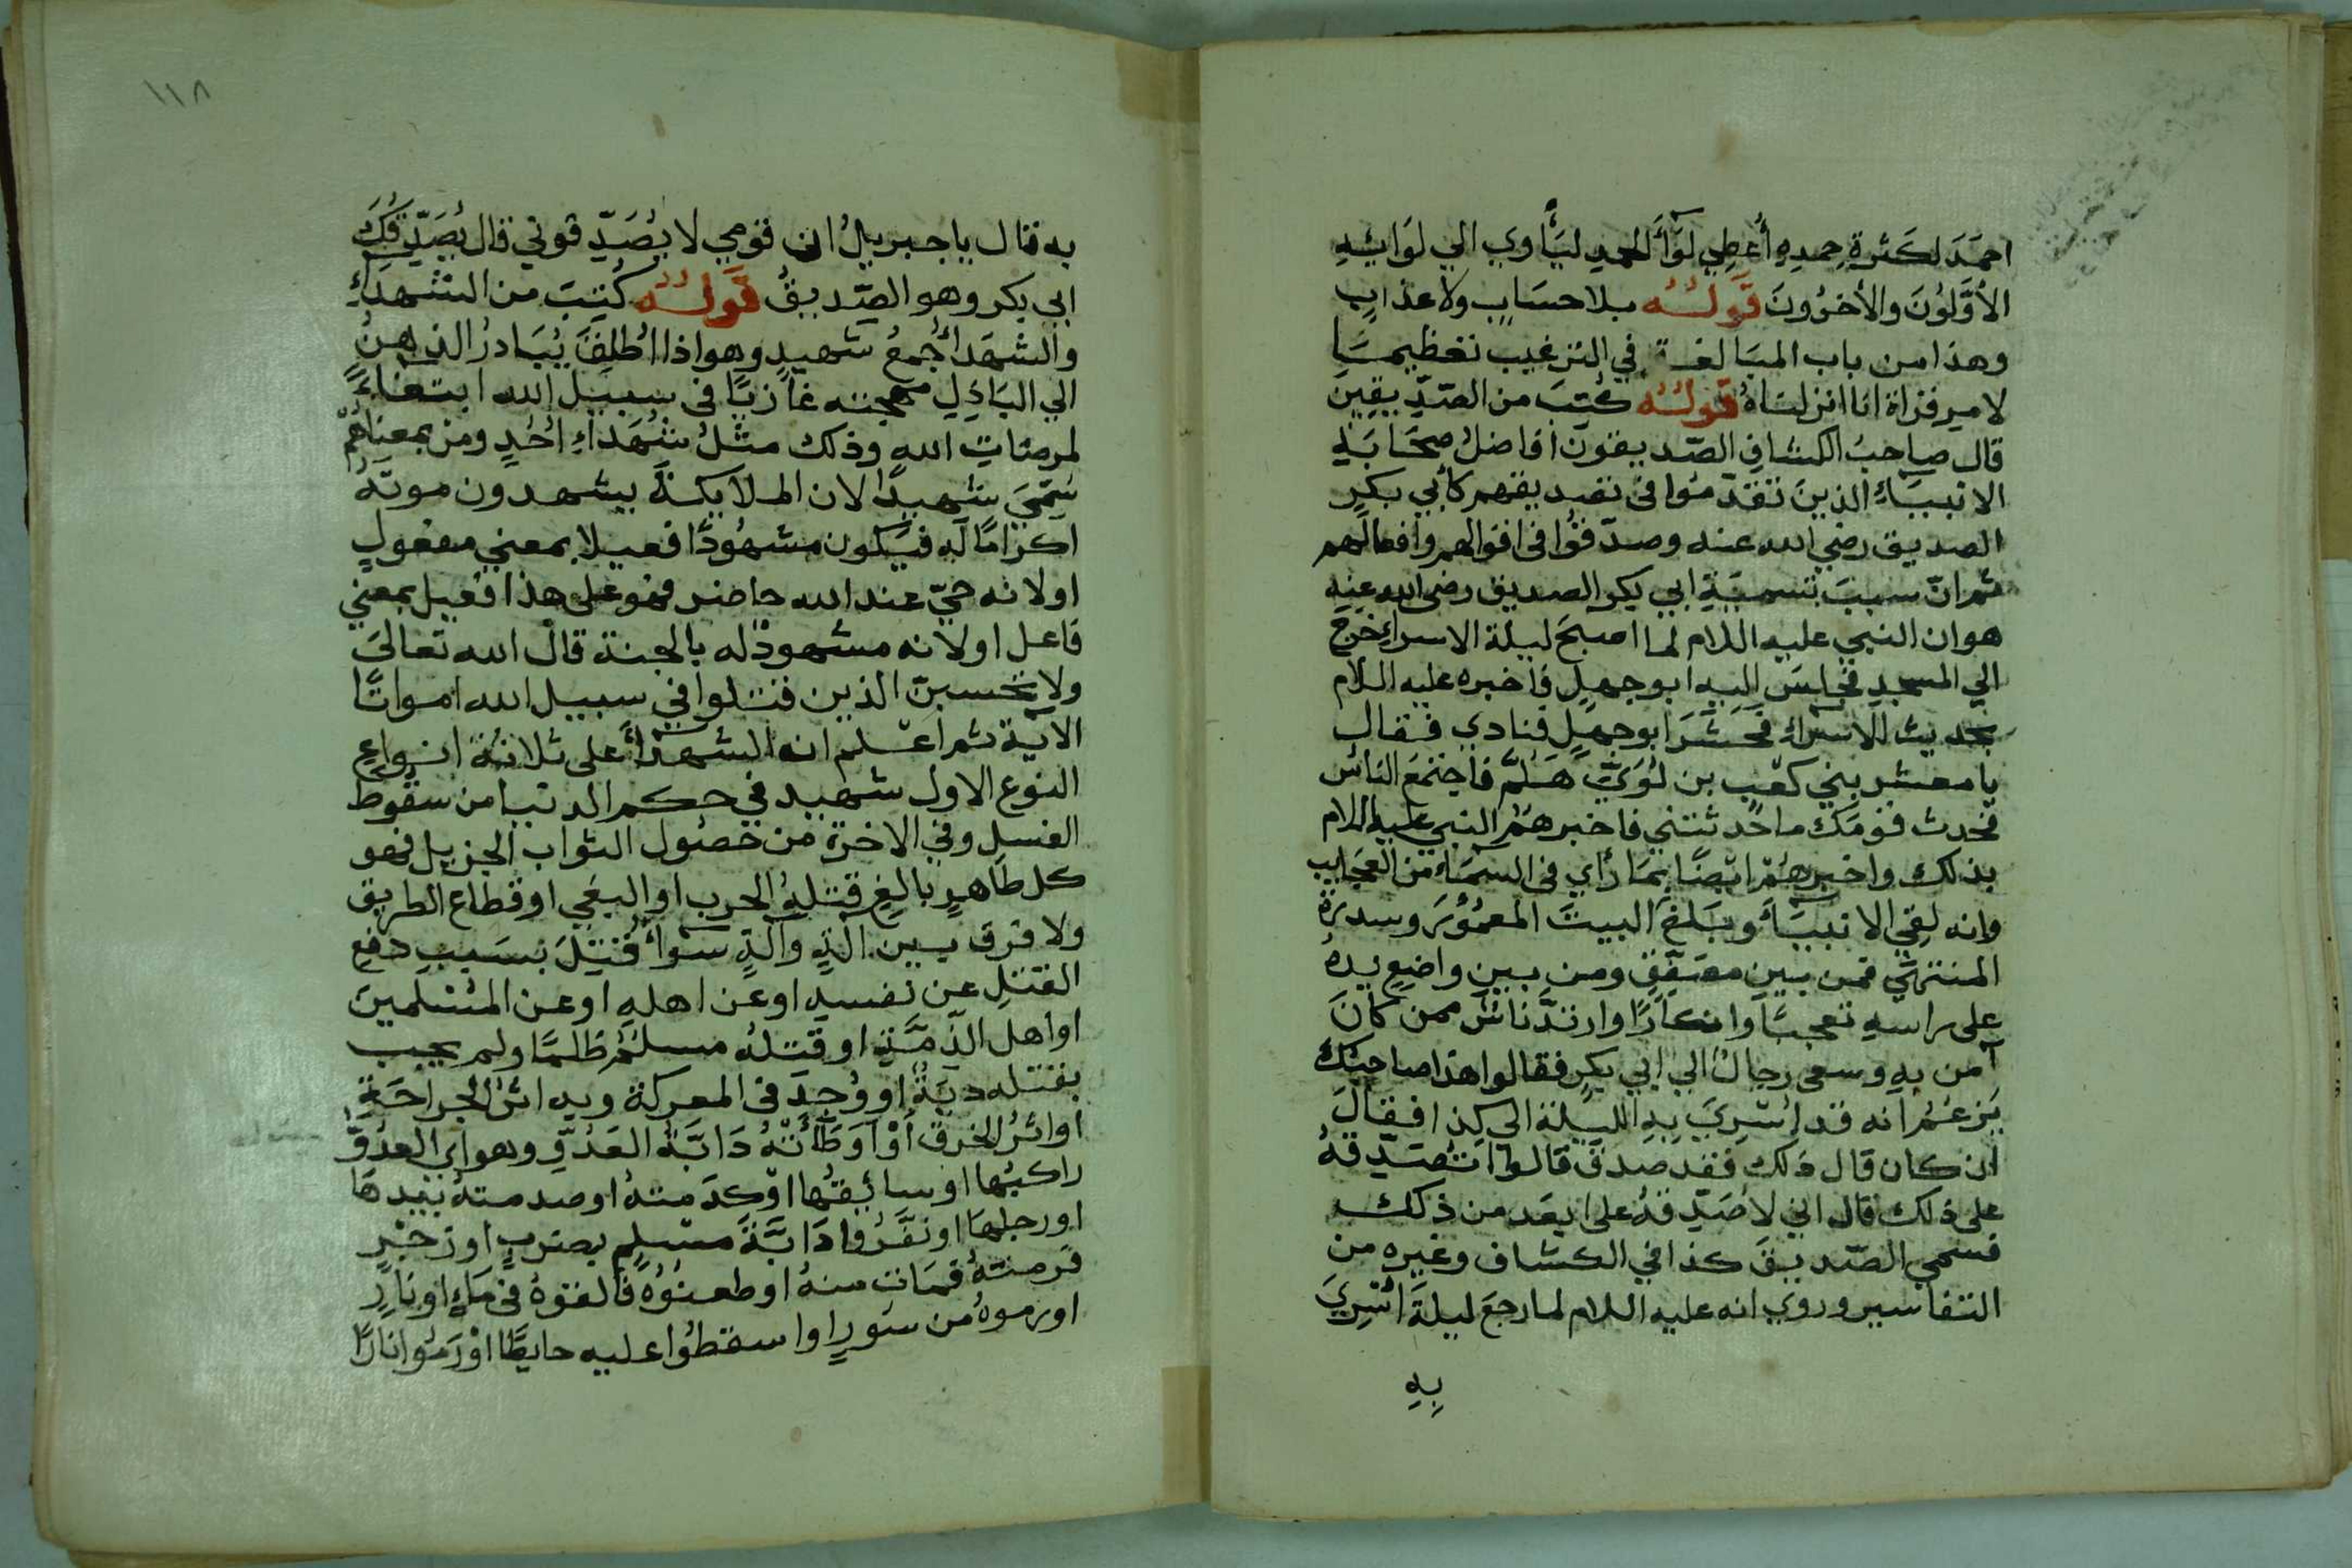 احمَدَ لكَثرةِ حمدِهِ أُعطِي لوَآءَ الحمدِ ليَأوِي الي لوَائِهِ
الأوَّلُونَ والأخرُونَ قَولُه بلا حسَابٍ ولا عذابٍ
وهذا من باب المبَالغة في الترغيب تعظيمًا
لامرِ قراة انا انزلناهُ قَولُه كُتبَ من الصّدِّيقينَ
قال صاحبُ الكشافِ الصّديقونَ افاضلُ صحَابَةِ
الانبيَاءِ الذينَ تقدّمُوا في تصديقهم كأبي بكرٍ
الصديق رضي الله عنه وصدّقوُا في اقوالهم وافعالهم
ثم انّ سببَ تسميَةِ ابي بكر الصديق رضي الله عنه
هو ان النبي عليه اللام لما اصبحَ ليلة الاسراءِ خرج
الي المسجدِ فجلسَ اليهِ ابو جهلٍ فاخبره عليه السلام
بحديث الاسراءِ فحَشَرَ ابو جهلٍ فنادي فقال
يا معشر بني كعْبِ بن لُوَيّ هَلُمَّ فاجتمعَ الناس
فحدث قومَك ما حدثتني فاخبرهمُ النبي عليه اللام
بذلك واخبرهُمْ ايضًا بمَا رَأي في السمَاء من العجايب
وانه لقي الانبيَاءَ وبَلغ البيتَ المعمُوْرَ وسدرَةَ
المنتهَي فمن بين مصَفّقٍ ومن بين واضعٍ يدهُ
على راسهِ تعجبًا وانكارًا وارتدَّ ناسٌ ممن كانَ
آمن بهِ وسعى رجالٌ الي ابي بكرٍ فقالوا هذا صاحبُك
يَزعُمُ انه قد اُسْرِيَ بِهِ الليلة الى كذا فقالَ
ان كان قال ذلك فقد صدقَ قالوا اتُصَدّقهُ
على ذلك قال اني لاصَدّقُهُ على ابعَد من ذلك
فسمي الصّديقَ كذا في الكشاف وغيره من
التفاسير وروي انه عليه اللام لما رجعَ ليلةَ اُسْرِيَ
بِهِ
١١٨
به قال يا جبريلُ ان قومي لا يُصَدِّقوني قال يُصَدِّقكَ
ابي بكر وهو الصّديقُ قَولُه كُتِبَ من الشهدَاءِ
والشهَداءُ جمعُ شهيدٍ وهو اذا اُطلِقَ يُبَادرُ الذهنُ
الي البَاذِلِ مهجته غازيًا في سبيل الله ابتغاءً
لمرضَاتِ الله وذلك مثلُ شُهَداءِ اُحُدٍ ومن بمعناهُمْ
سُمّيَ شهيدًا لان الملايكةَ يشهدون موتَهُ
اكرَامًا لَهُ فيَكون مشهُودًا فعيلا بمعني مفعولٍ
او لانه حيّ عند الله حاضر فهو على هذا فعيل بمعني
فاعل او لانه مشهودٌ له بالجنة قال الله تعالى
ولا تحسبنّ الذين قتلوا في سبيل الله امواتًا
الآية ثم اعْلم انه الشهدَآءَ على ثلاثة انواعٍ
النوع الاول شهيد في حكم الدنيا من سقُوط
الغسلِ وفي الاخرة من حصُول الثواب الجزيل فهو
كل طَاهرٍ بالغٍ قتلهُ الحرب او البغي او قطاع الطريق
ولا فرق بين الّةٍ وآلةٍ سَوَآءٌ قُتِلَ بسَببِ دفع
القتلِ عن نفسهِ او عن اهلهِ او عن المسْلمينَ
او اهل الذّمَّةِ او قتلهُ مسلمٌ ظلمًا ولم يجب
بقتله ديَةٌ او وُجدَ في المعركة وبه اثرُ الجراحَةِ
او اثرُ الخرق أوْ اوَطَأتْهُ دَابَّةُ العَدُوِّ وهو اي العدُوّ
راكبُها او سائِقُها اوْ كدَمتهُ او صدمتهُ بيَدهَا
او رجلهَا او نفَّرُوا دَابَّةَ مسْلمٍ بضربٍ او زجْرٍ
فرمتهُ فمَات منهُ او طعنُوُه فالقوهُ في مَاءٍ او نَارٍ
او رموهُ من سورٍ او اسقطُوا عليه حايطًا اوْ رَمُوا نارًا